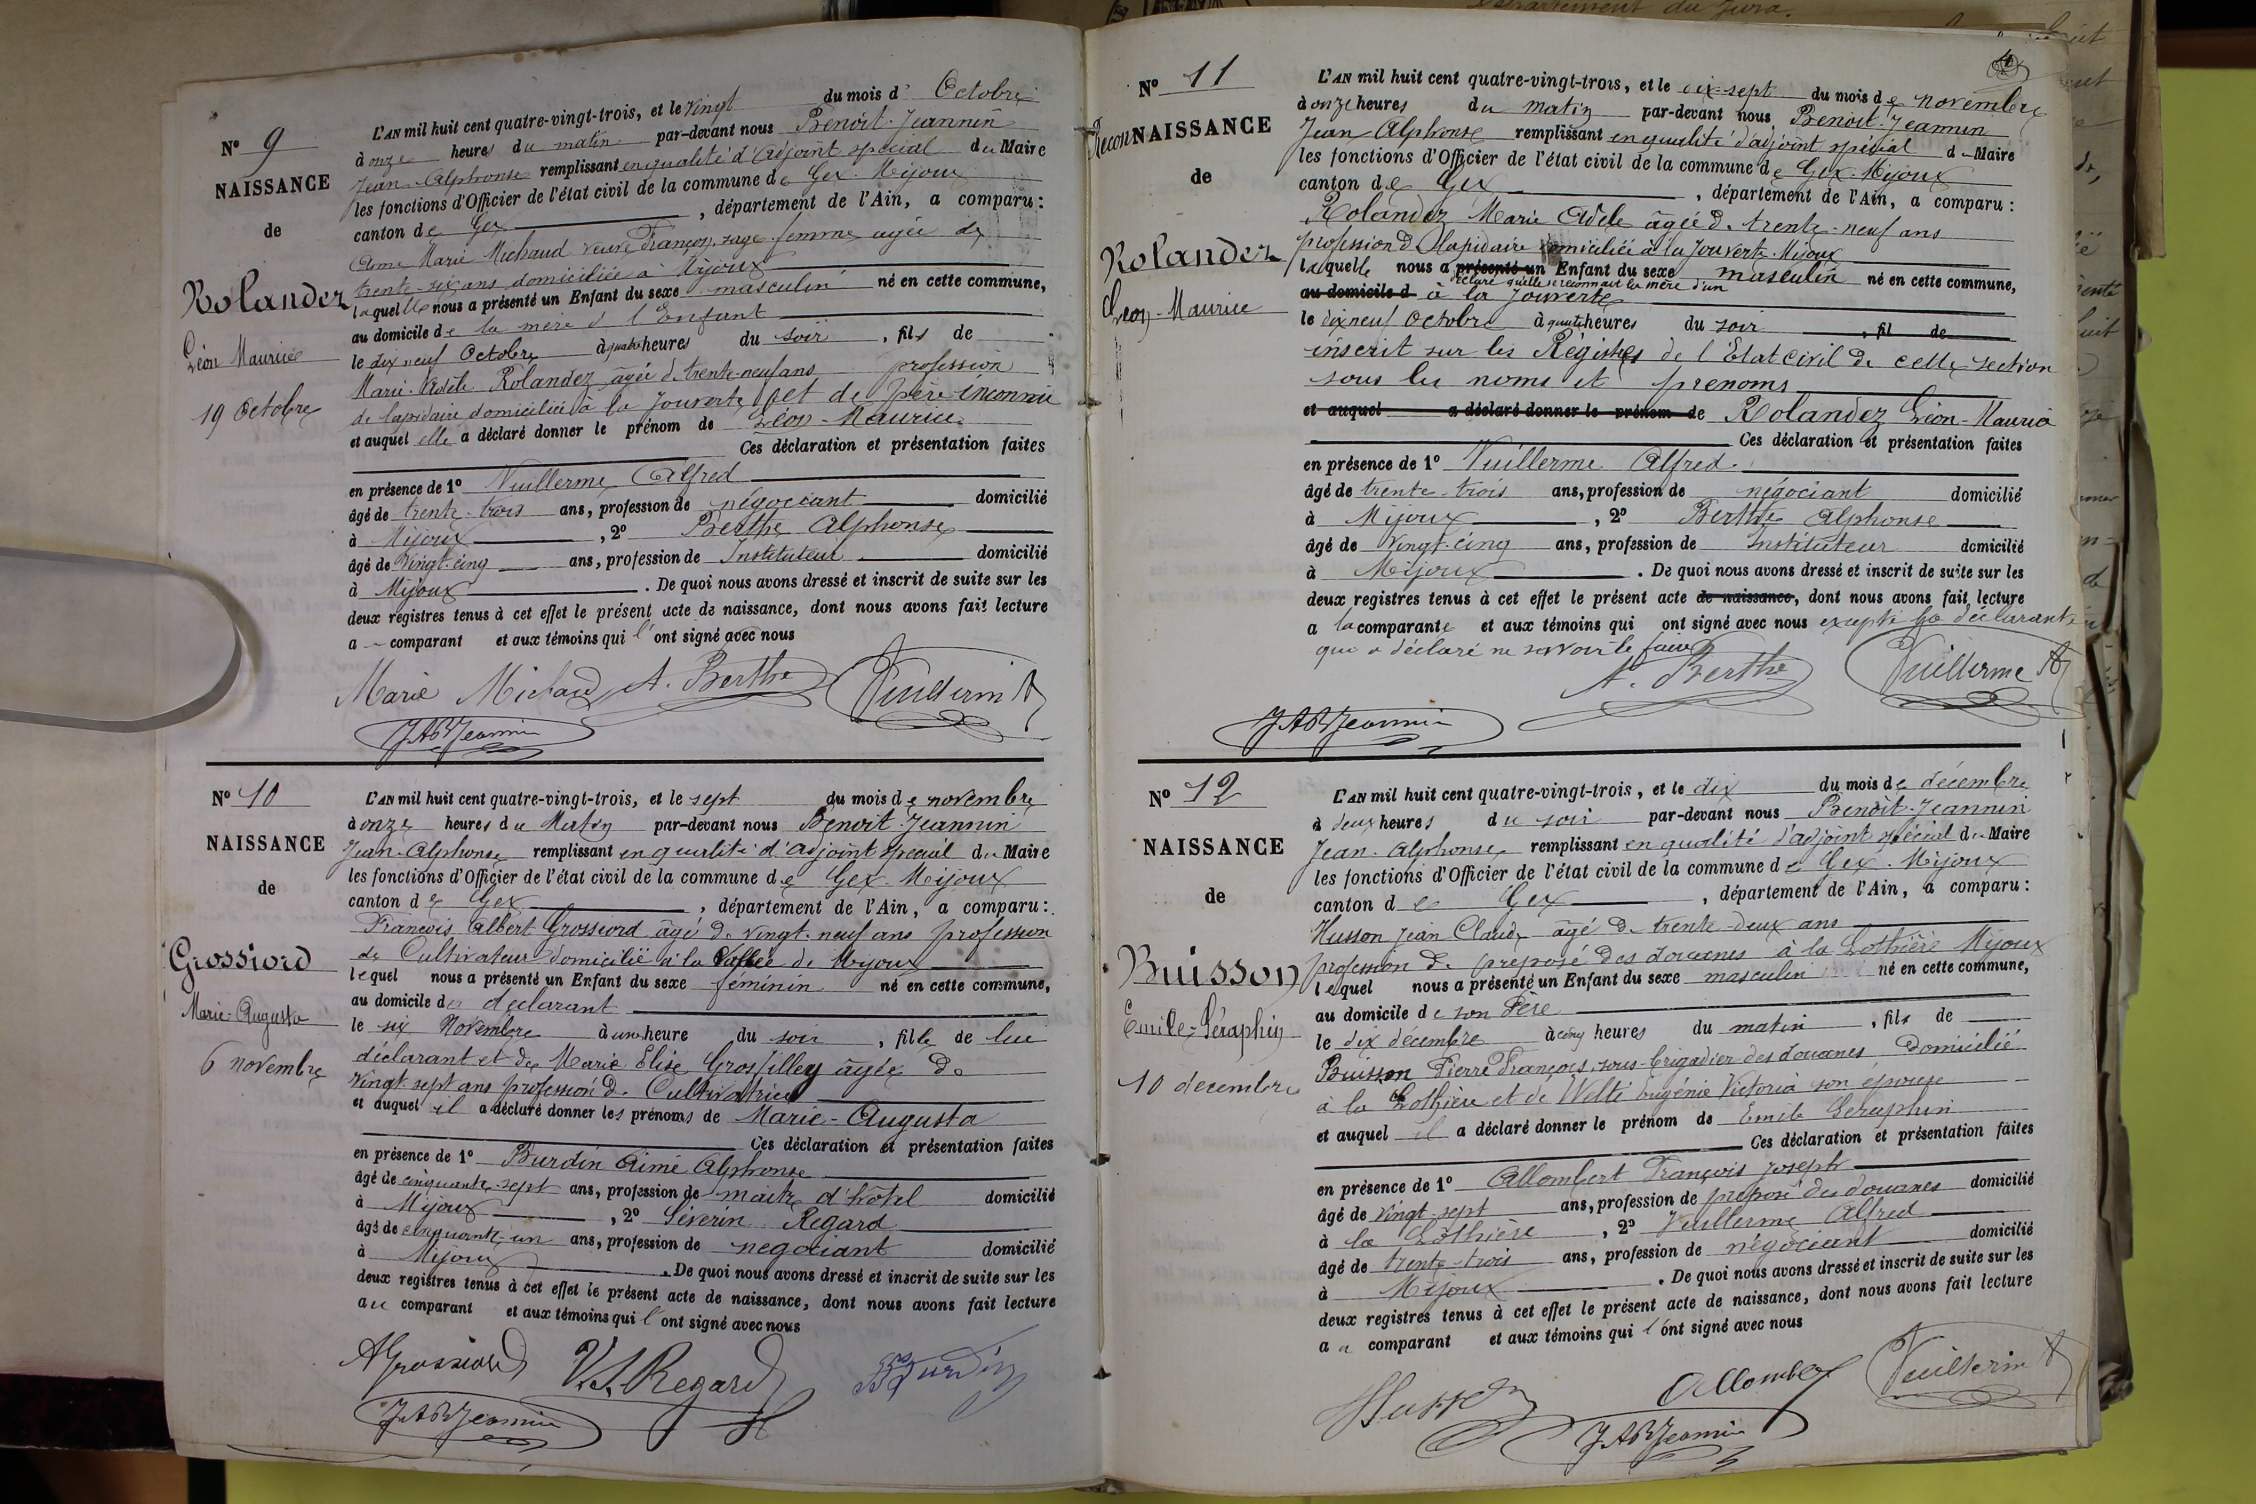 Nº 9
NAISSANCE
de
Rolandez
Léon Maurice
19 Octobre
L'AN mil huit cent quatre-vingt-trois, et le vingt du mois d' Octobre
à onze heures du matin par-devant nous Benoit-Jeannin
Jean-Alphonse remplissant en qualité d'adjoint spécial du Maire
les fonctions d'Officier de l'état civil de la commune de Gex-Mijoux
canton de Gex, département de l'Ain, a comparu :
Marie Michaud veuve François sage-femme agée de
trente-six ans domiciliée à Mijoux
laquelle nous a présenté un Enfant du sexe masculin né en cette commune,
au domicile de la mère d l'Enfant
le dix neuf Octobre à quatre heures du soir, fils de
Marie-Adèle Rolandez âgée de trente-neuf ans profession
de lapidaire domiciliée à la Jouverte et de père inconnu
et auquel elle a déclaré donner le prénom de Léon-Maurice
Ces déclaration et présentation faites
en présence de 1º Vuillerme Alfred
âgé de trente-trois ans, profession de négociant domicilié
à Mijoux, 2º Berthe Alphonse
âgé de vingt-cinq ans, profession de Instituteur domicilié
à Mijoux. De quoi nous avons dressé et inscrit de suite sur les
deux registres tenus à cet effet le présent acte de naissance, dont nous avons fait lecture
a comparant et aux témoins qui l'ont signé avec nous
Marie Michaud A. Berthe Vuillerme A
JABJeannin
Nº 10
NAISSANCE
de
Grossiord
Marie-Augusta
6 novembre
L'AN mil huit cent quatre-vingt-trois, et le sept du mois de novembre
à onze heures du Matin par-devant nous Benoit-Jeannin
Jean-Alphonse remplissant en qualité d'adjoint spécial du Maire
les fonctions d'Officier de l'état civil de la commune de Gex-Mijoux
canton de Gex, département de l'Ain, a comparu :
François Albert Grossiord âgé de vingt-neuf ans profession
de Cultivateur domicilié à la Vallée de Mijoux
lequel nous a présenté un Enfant du sexe féminin né en cette commune,
au domicile du déclarant
le six Novembre à une heure du soir, fille de lui
déclarant et de Marie Elise Grosfilley âgée de
vingt sept ans profession de Cultivatrice
et auquel il a déclaré donner les prénoms de Marie-Augusta
Ces déclaration et présentation faites
en présence de 1º Burdin Aimé Alphonse
âgé de cinquante-sept ans, profession de maître d'hôtel domicilié
à Mijoux, 2º Séverin Regard
âgé de cinquante-un ans, profession de négociant domicilié
à Mijoux. De quoi nous avons dressé et inscrit de suite sur les
deux registres tenus à cet effet le présent acte de naissance, dont nous avons fait lecture
au comparant et aux témoins qui l'ont signé avec nous
AGrossiord V.S. Regard Burdin
JABJeannin
Nº 11
ReconNAISSANCE
de
Rolandez
Léon-Maurice
L'AN mil huit cent quatre-vingt-trois, et le dix-sept du mois de novembre
à onze heures du matin par-devant nous Benoit-Jeannin
Jean Alphonse remplissant en qualité d'adjoint spécial du Maire
les fonctions d'Officier de l'état civil de la commune de Gex-Mijoux
canton de Gex, département de l'Ain, a comparu :
Rolandez Marie Adèle âgée de trente-neuf ans
profession de lapidaire domiciliée à la Jouverte Mijoux
laquelle nous a présenté un Enfant du sexe masculin né en cette commune,
déclaré qu'elle se reconnait la mère d'un
au domicile d à la Jouverte
le dix neuf Octobre à quatre heures du soir, fil de
inscrit sur les Régistres de l'Etat civil de cette section
sous les noms et prenoms
et auquel a déclaré donner le prénom de Rolandez Léon-Maurice
Ces déclaration et présentation faites
en présence de 1º Vuillerme Alfred
âgé de trente-trois ans, profession de négociant domicilié
à Mijoux, 2º Berthe Alphonse
âgé de vingt-cinq ans, profession de Instituteur domicilié
à Mijoux. De quoi nous avons dressé et inscrit de suite sur les
deux registres tenus à cet effet le présent acte de naissance, dont nous avons fait lecture
a la comparante et aux témoins qui ont signé avec nous excepté la déclarante
qui a déclaré ne savoir le faire
A. Berthe Vuillerme A
JABJeannin
Nº 12
NAISSANCE
de
Buisson
Emile-Séraphin
10 decembre
L'AN mil huit cent quatre-vingt-trois, et le dix du mois de décembre
à deux heures du soir par-devant nous Benoit-Jeannin
Jean-Alphonse remplissant en qualité d'adjoint spécial du Maire
les fonctions d'Officier de l'état civil de la commune de Gex-Mijoux
canton de Gex, département de l'Ain, a comparu :
Husson Jean Claude âgé de trente-deux ans
profession de préposé des douanes à la Lothière Mijoux
lequel nous a présenté un Enfant du sexe masculin né en cette commune,
au domicile de son Père
le dix décembre à cinq heures du matin, fils de
Buisson Pierre François, sous-brigadier des douanes Domicilié
à la Lothière et de Welti Eugénie Victoria son épouse
et auquel il a déclaré donner le prénom de Emile Séraphin
Ces déclaration et présentation faites
en présence de 1º Allombert François Joseph
âgé de vingt-sept ans, profession de préposé des douanes domicilié
à la Lothière, 2º Vuillerme Alfred
âgé de trente-trois ans, profession de négociant domicilié
à Mijoux. De quoi nous avons dressé et inscrit de suite sur les
deux registres tenus à cet effet le présent acte de naissance, dont nous avons fait lecture
au comparant et aux témoins qui l'ont signé avec nous
Husson Allombert Vuillerme A
JABJeannin